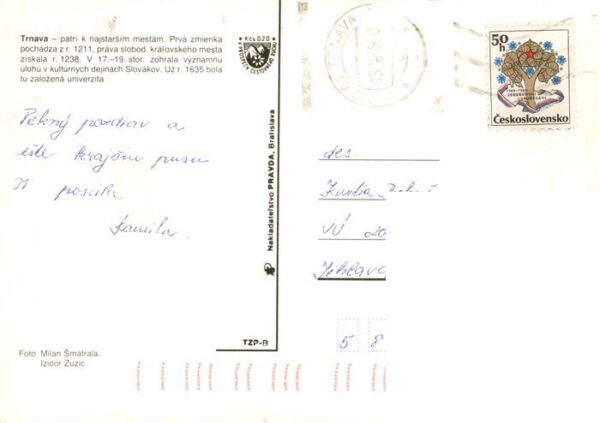 Trnava – patrí k najstarším mestám. Prvá zmienka
pochádza z r. 1211, práva slobod. kráľovského mesta
získala r. 1238. V 17.–19. stor. zohrala významnú
úlohu v kultúrnych dejinách Slovákov. Už r. 1635 bola
tu založená univerzita
Kčs 0.20
Pekný pozdrav a
ešte krajšiu pusu
Ti posiela
Kamila.
Foto: Milan Šmátrala,
Izidor Zuzic
Nakladateľstvo PRAVDA, Bratislava
TZP-B
TRNAVA
50
h
Československo
des.
VÚ
Jihlava
5 8